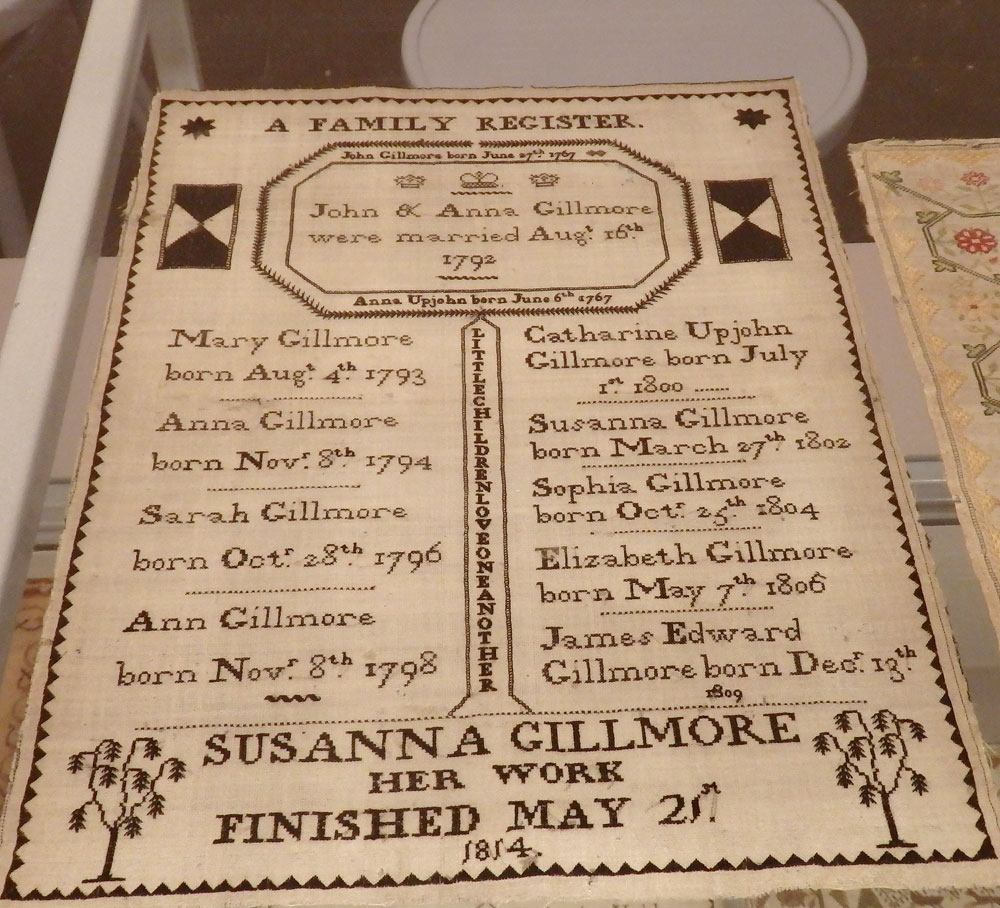 A FAMILY REGISTER.
John Gillmore born June 27th. 1767
John & Anna Gillmore
were married Augt. 16th
1792
Anna Upjohn born June 6th 1767
Mary Gillmore
born Augt. 4th. 1793
Anna Gillmore
born Novr. 8th. 1794
Sarah Gillmore
born Octr. 28th. 1796
Ann Gillmore
born Novr. 8th 1798
LITTLECHILDRENLOVEONEANOTHER
Catharine Upjohn
Gillmore born July
1st 1800 ......
Susanna Gillmore
born March 27th 1802
Sophia Gillmore
born Octr. 25th 1804
Elizabeth Gillmore
born May 7th 1806
James Edward
Gillmore born Decr. 13th
1809
SUSANNA GILLMORE
HER WORK
FINISHED MAY 21st.
1814.